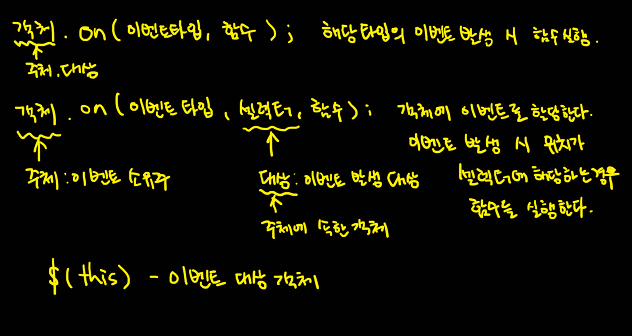 객체 . on ( 이벤트타입, 함수 ) ; 해당타입의 이벤트 발생 시 함수실행.
주체, 대상
객체 . on ( 이벤트 타입 , 셀렉터 , 함수 ) ; 객체에 이벤트를 할당한다.
이벤트 발생 시 위치가
주체 : 이벤트 소유주 대상 : 이벤트 발생 대상 셀렉터에 해당하는경우
함수를 실행한다.
주체에 속한 객체
$(this) - 이벤트 대상 객체